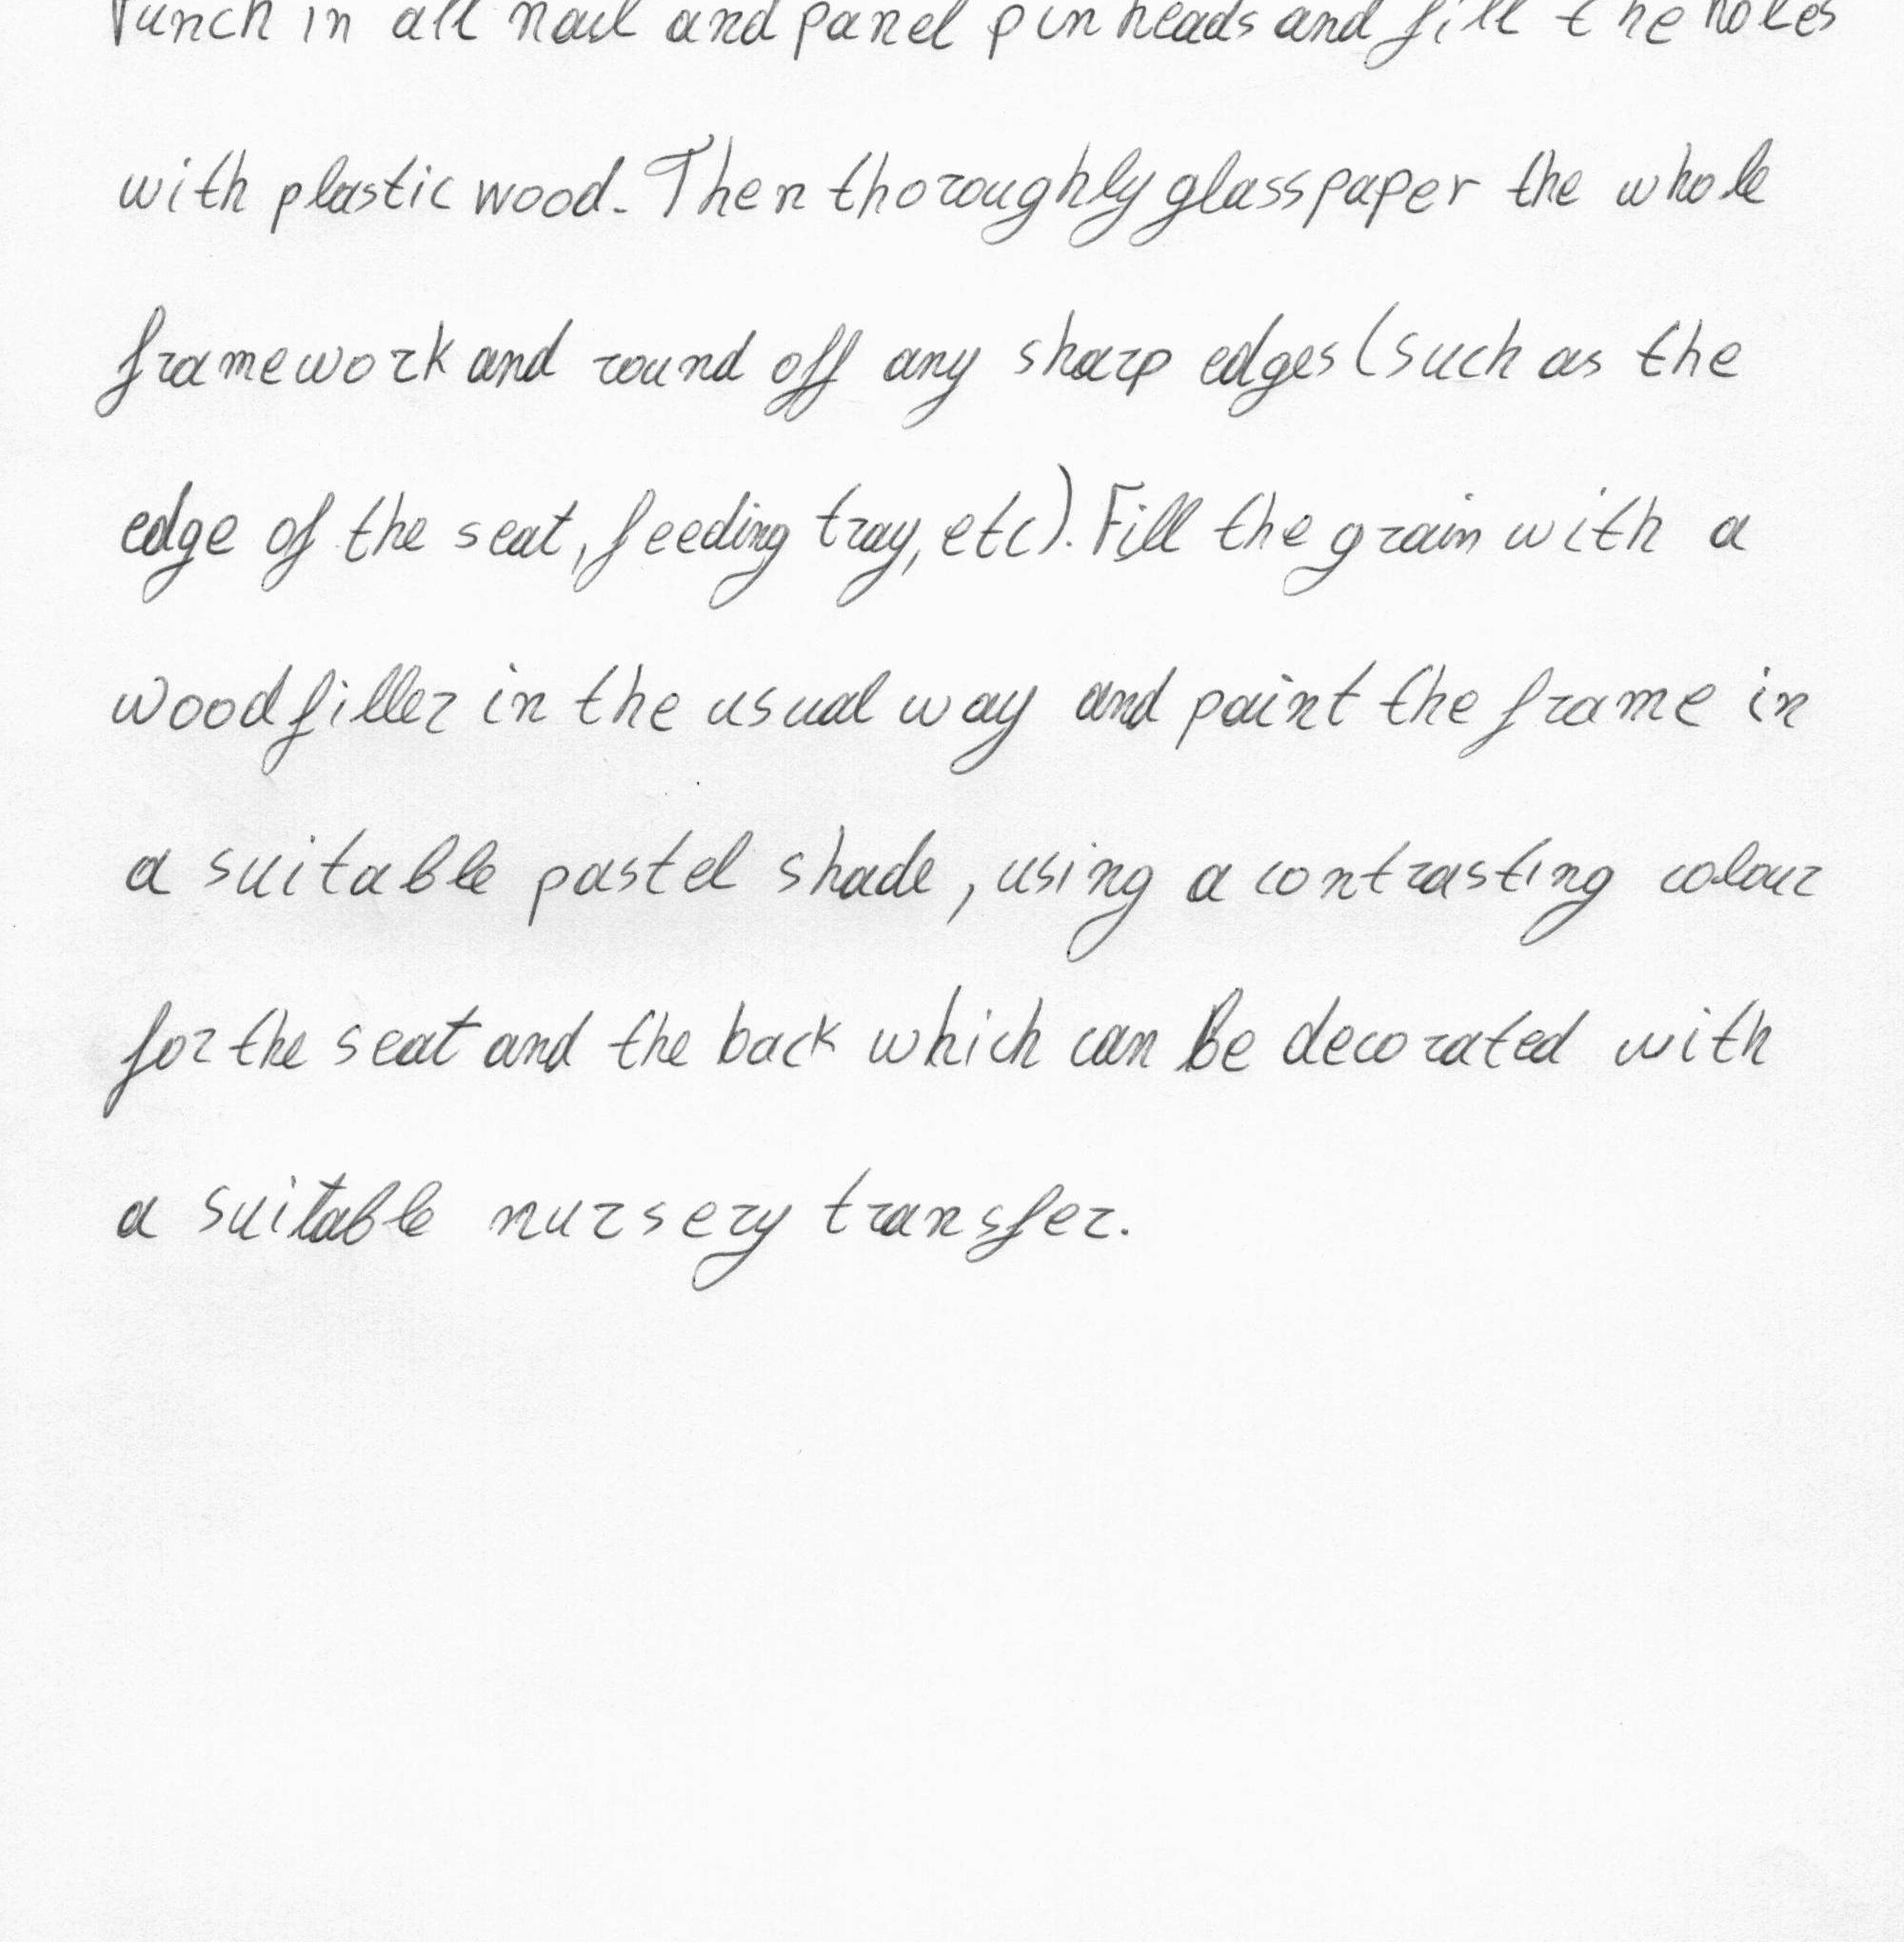 Punch in all nail and panel pin heads and fill the holes
with plastic wood. Then thoroughly glasspaper the whole
framework and round off any sharp edges (such as the
edge of the seat, feeding tray, etc). Fill the grain with a
woodfiller in the usual way and paint the frame in
a suitable pastel shade, using a contrasting colour
for the seat and the back which can be decorated with
a suitable nursery transfer.